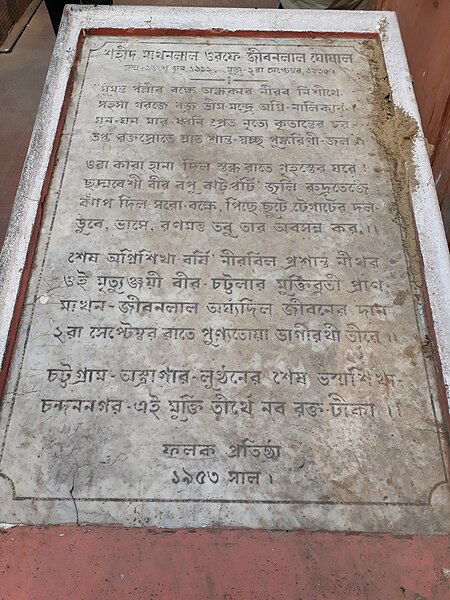 শহীদ মাখনলাল ওরফে জীবনলাল ঘোষাল
জন্ম: জুন, ১৯১২, মৃত্যু: ২রা সেপ্টেম্বর, ১৯৩০
ঘুমন্ত পল্লীর বক্ষে অন্ধকার নীরব নিশীথে
সহসা গরজে বজ্র ভীম-মন্দ্রে অগ্নি-নালিকার।
ঘন-ঘন মার ধ্বনি প্রেত নৃত্যে কৃতান্তের চর
তপ্ত রক্তস্রোতে স্নাত শান্ত-স্বচ্ছ পুষ্করিণী-জল।।
ওরা কারা হানা দিল স্তব্ধ রাতে গৃহস্থের ঘরে।
ছদ্মবেশী বীর বপু ঝটিপটি জ্বলি রুদ্রতেজে
ঝাঁপ দিল সরো-বক্ষে, পিছে ছুটে টেগার্টের দল
ডুবে, ভাসে, রণমত্ত তনু তার অবসন্ন কর।।
শেষ অগ্নিশিখা-বর্ষি নীরবিল প্রশান্ত নীথর
ওই মৃত্যুঞ্জয়ী বীর-চট্টলার মুক্তিব্রতী প্রাণ-
মাখন-জীবনলাল অর্ঘ্যদিল জীবনের দান
২রা সেপ্টেম্বর রাতে পুণ্যতোয়া ভাগীরথী তীরে।।
চট্টগ্রাম-অস্ত্রাগার-লুণ্ঠনের শেষ ভস্মশিখা-
চন্দননগর-এই মুক্তি তীর্থে নব রক্ত-টীকা।।
ফলক প্রতিষ্ঠা
১৯৫৩ সাল।